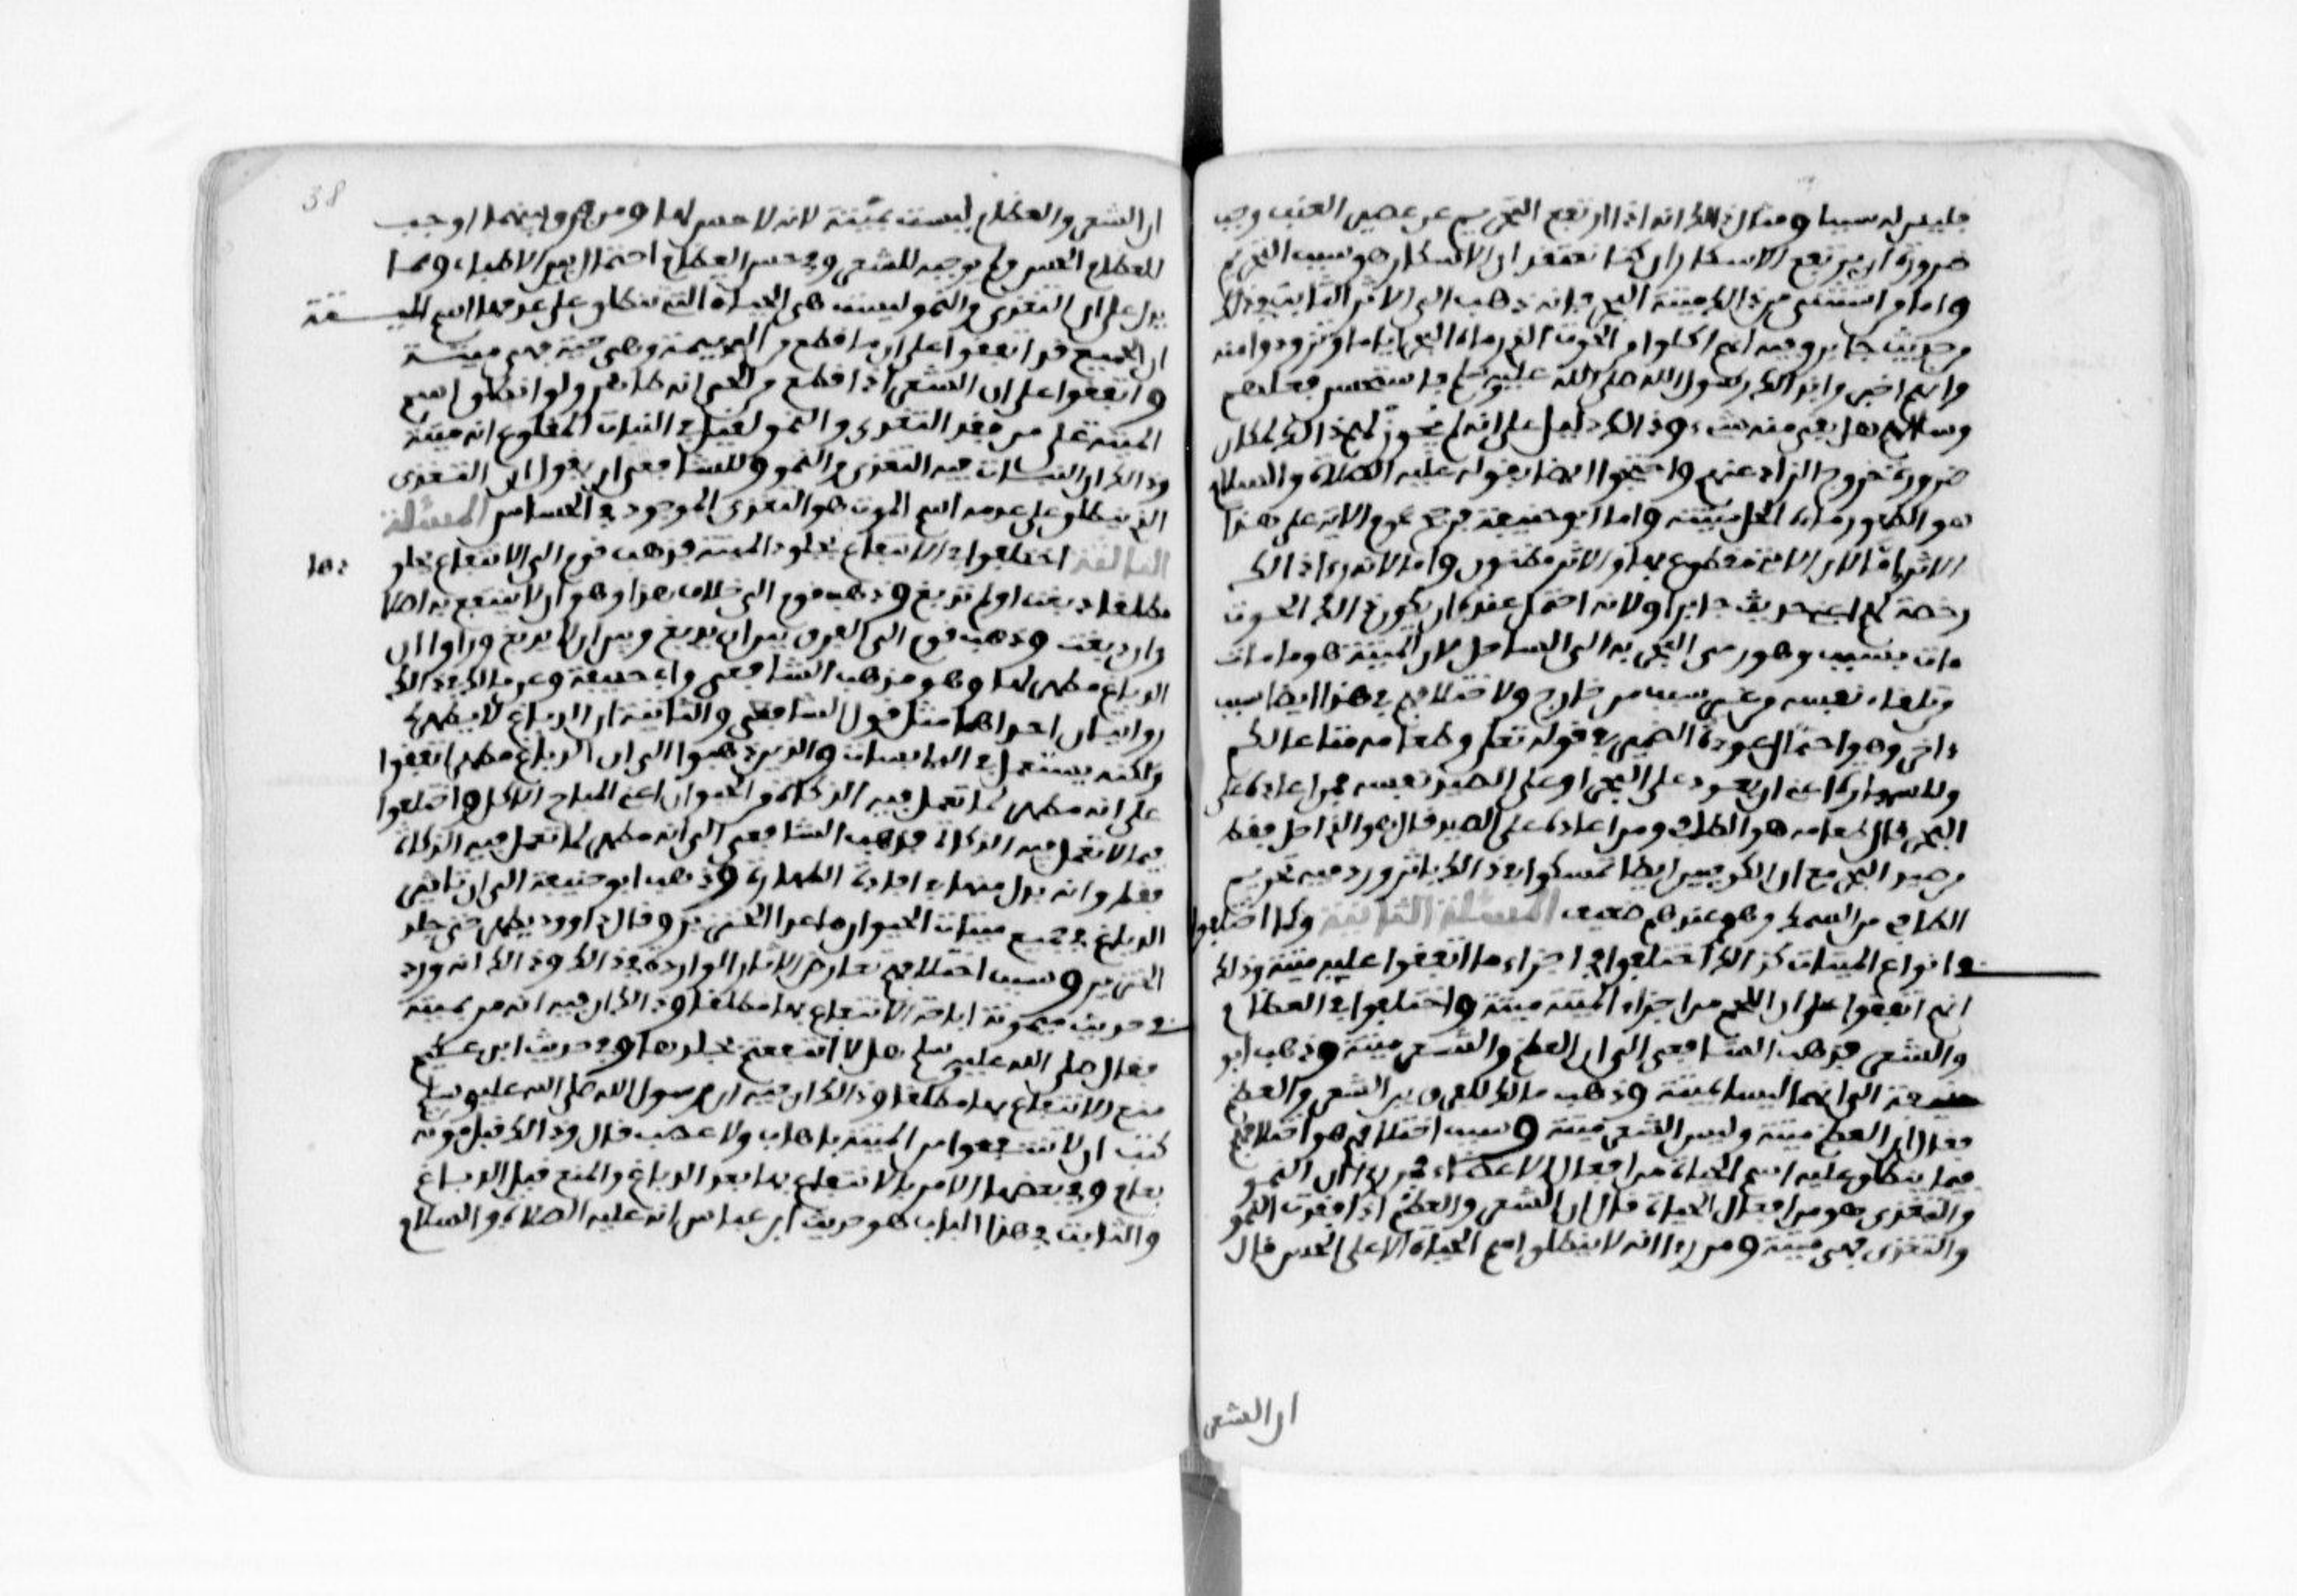 فليس له سببا ومثال ذلك انه اذا ارتفع التحريم عن عصير العنب وجب
ضرورة ان يرتفع الاسكار ان كنا نعتقد ان الاسكار هو سبب التحريم
واما من استثنى من ذلك ميتة البحر فانه ذهب الى الاثر الثابت وذلك
من حديث جابر وفيه انهم اكلوا من الحوت الذي رماه البحر اياما وتزودوا منه
وانهم اخبروا بذلك رسول الله صلى الله عليه وسلم فاستحسن فعلهم
وسألهم هل بقي منه شيء وذلك دليل على انه لم يجوز لهم ذلك لمكان
ضرورة خروج الزاد عنهم واحتجوا ايضا بقوله عليه الصلاة والسلام
هو الطهور ماؤه الحل ميتته واما ابو حنيفة فرجح عموم الاية على هذا
الاثر اما لان الاية مقطوع بها والاثر مظنون واما لانه رءا ذلك
رخصة لهم اعني حديث جابر او لانه احتمل عنده ان يكون ذلك الحوت
مات بسبب وهو رمي البحر به الى الساحل لان الميتة هو ما مات
من تلقاء نفسه من غير سبب من خارج ولاختلافهم في هذا ايضا سبب
داخر وهو احتمال عودة الضمير في قوله تعلى وطعامه متاعا لكم
وللسيارة اعني ان يعود على البحر او على الصيد نفسه فمن اعاده على
البحر قال طعامه هو الطافي ومن اعاده على الصيد قال هو الذي احل فقط
من صيد البحر مع ان الكوفيين ايضا تمسكوا في ذلك باثر ورد فيه تحريم
الطافي من السمك وهو عندهم ضعيف المسئلة الثانية وكما اختلفوا
في انواع الميتات كذلك اختلفوا في اجزاء ما اتفقوا عليه ميتة وذلك
انهم اتفقوا على ان اللحم من اجزاء الميتة ميتة واختلفوا في العظام
والشعر فذهب الشافعي الى ان العظم والشعر ميتة وذهب ابو
حنيفة الى انهما ليسا بميتة وذهب مالك للفرق بين الشعر والعظم
فقال ان العظم ميتة وليس الشعر ميتة وسبب اختلافهم هو اختلافهم
فيما ينطلق عليه اسم الحياة من افعال الاعضاء فمن رءا ان النمو
والتغذي هو من افعال الحياة قال ان الشعر والعظم اذا فقدت النمو
والتغذي فهي ميتة ومن رءا انه لا ينطلق اسم الحياة الا على الحس قال
ان الشعر
38
ان الشعر والعظام ليست بميتة لانه لا حس لها ومن فرق بينهما اوجب
للعظام الحس ولم يوجبه للشعر وفي حس العظام اختلاف بين الاطباء ومما
يدل على ان التغذي والنمو ليست هي الحياة التي ينطلق على عدمها اسم الميتة
ان الجميع قد اتفقوا على ان ما قطع من البهيمة وهي حية فهي ميتة
واتفقوا على ان الشعر اذا قطع من الحي انه طاهر ولو انطلق اسم
الميتة على من فقد التغذي والنمو لقيل في النبات المقلوع انه ميتة
وذلك ان النبات فيه التغذي والنمو وللشافعي ان يقول ان التغذي
الذي ينطلق على عدمه اسم الموت هو التغذي الموجود في الحساس المسئلة
الثالثة اختلفوا في الانتفاع بجلود الميتة فذهب قوم الى الانتفاع بجلو
دها
مطلقا دبغت او لم تدبغ وذهب قوم الى خلاف هذا وهو ان لا ينتفع به اصلا
وان دبغت وذهب قوم الى الفرق بين ان يدبغ وبين ان لا يدبغ وراوا ان
الدباغ مطهر لها وهو مذهب الشافعي وابي حنيفة وعن مالك في ذلك
روايتان احداهما مثل قول الشافعي والثانية ان الدباغ لا يطهرها
ولكنه يستعمل في اليابسات والذين ذهبوا الى ان الدباغ مطهر اتفقوا
على انه مطهر لما تعمل فيه الذكاة من الحيوان اعني المباح الاكل واختلفوا
فيما لا تعمل فيه الذكاة فذهب الشافعي الى انه مطهر لما تعمل فيه الذكاة
فقط وانه بدل منها في افادة الطهارة وذهب ابو حنيفة الى ان تاثير
الدباغ في جميع ميتات الحيوان ما عدا الخنزير وقال داوود يطهر حتى جلد
الخنزير وسبب اختلافهم تعارض الاثار الواردة في ذلك وذلك انه ورد
في حديث ميمونة اباحة الانتفاع بها مطلقا وذلك ان فيه انه مر بميتة
فقال صلى الله عليه وسلم هل لا انتفعتم بجلدها وفي حديث ابن عكيم
منع الانتفاع بها مطلقا وذلك ان فيه ان رسول الله صلى الله عليه وسلم
كتب ان لا تنتفعوا من الميتة باهاب ولا عصب قال وذلك قبل موته
بعام وفي بعضها الامر بالانتفاع بها بعد الدباغ والمنع قبل الدباغ
والثابت في هذا الباب هو حديث ابن عباس انه عليه الصلاة والسلام